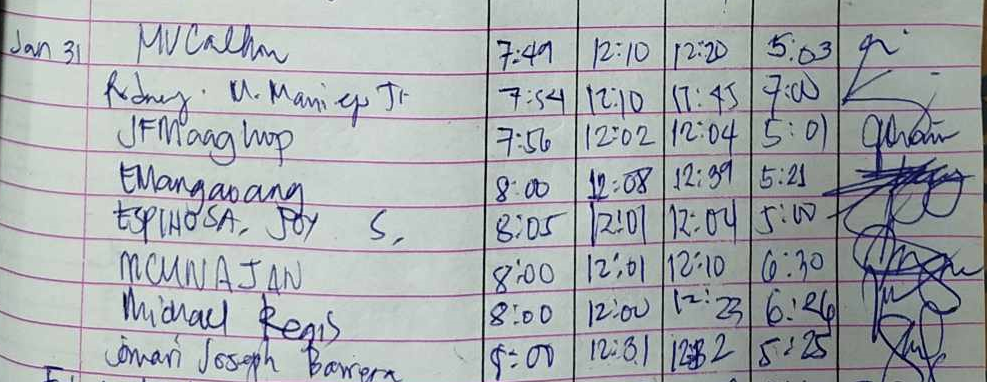 Jan 31 MVCalhm 7:49 12:10 12:20 5:03
Rodney. U. Maniego Jr 7:54 12:10 17:45 7:00
JFMaaghop 7:56 12:02 12:04 5:01
EMangaoang 8:00 12:08 12:39 5:21
ESPINOSA, JOY S, 8:05 12:01 12:04 5:00
MCMNAJAN 8:00 12:01 12:10 6:30
Michael Regis 8:00 12:00 12:23 6:26
Joseph Barrera 8:00 12:31 12:32 5:25